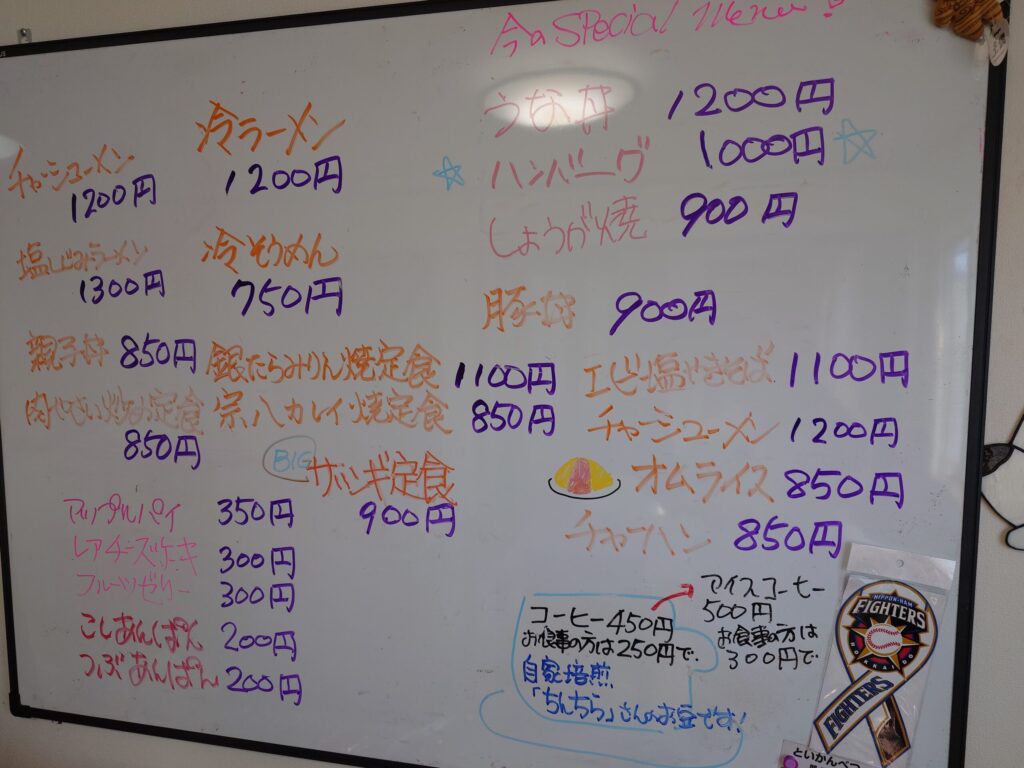 今のSPecial Menu!
うな丼 1200円
ハンバーグ 1000円
しょうが焼 900円
豚丼 900円
エビ塩やきそば 1100円
チャーシューメン 1200円
オムライス 850円
チャーハン 850円
冷ラーメン
1200円
チャーシューメン
1200円
塩しじみラーメン
1300円
冷そうめん
750円
親子丼 850円
銀だらみりん焼定食 1100円
肉やさい炒め定食
850円
宗八カレイ焼定食 850円
BIG
ザンギ定食
900円
アップルパイ 350円
レアチーズケーキ 300円
フルーツゼリー 300円
こしあんぱん 200円
つぶあんぱん 200円
コーヒー450円
お食事の方は250円で.
自家焙煎
「ちんちら」さんのお豆です!
アイスコーヒー
500円
お食事の方は
300円で
NIPPON-HAM
FIGHTERS
FIGHTERS
といかんべつ